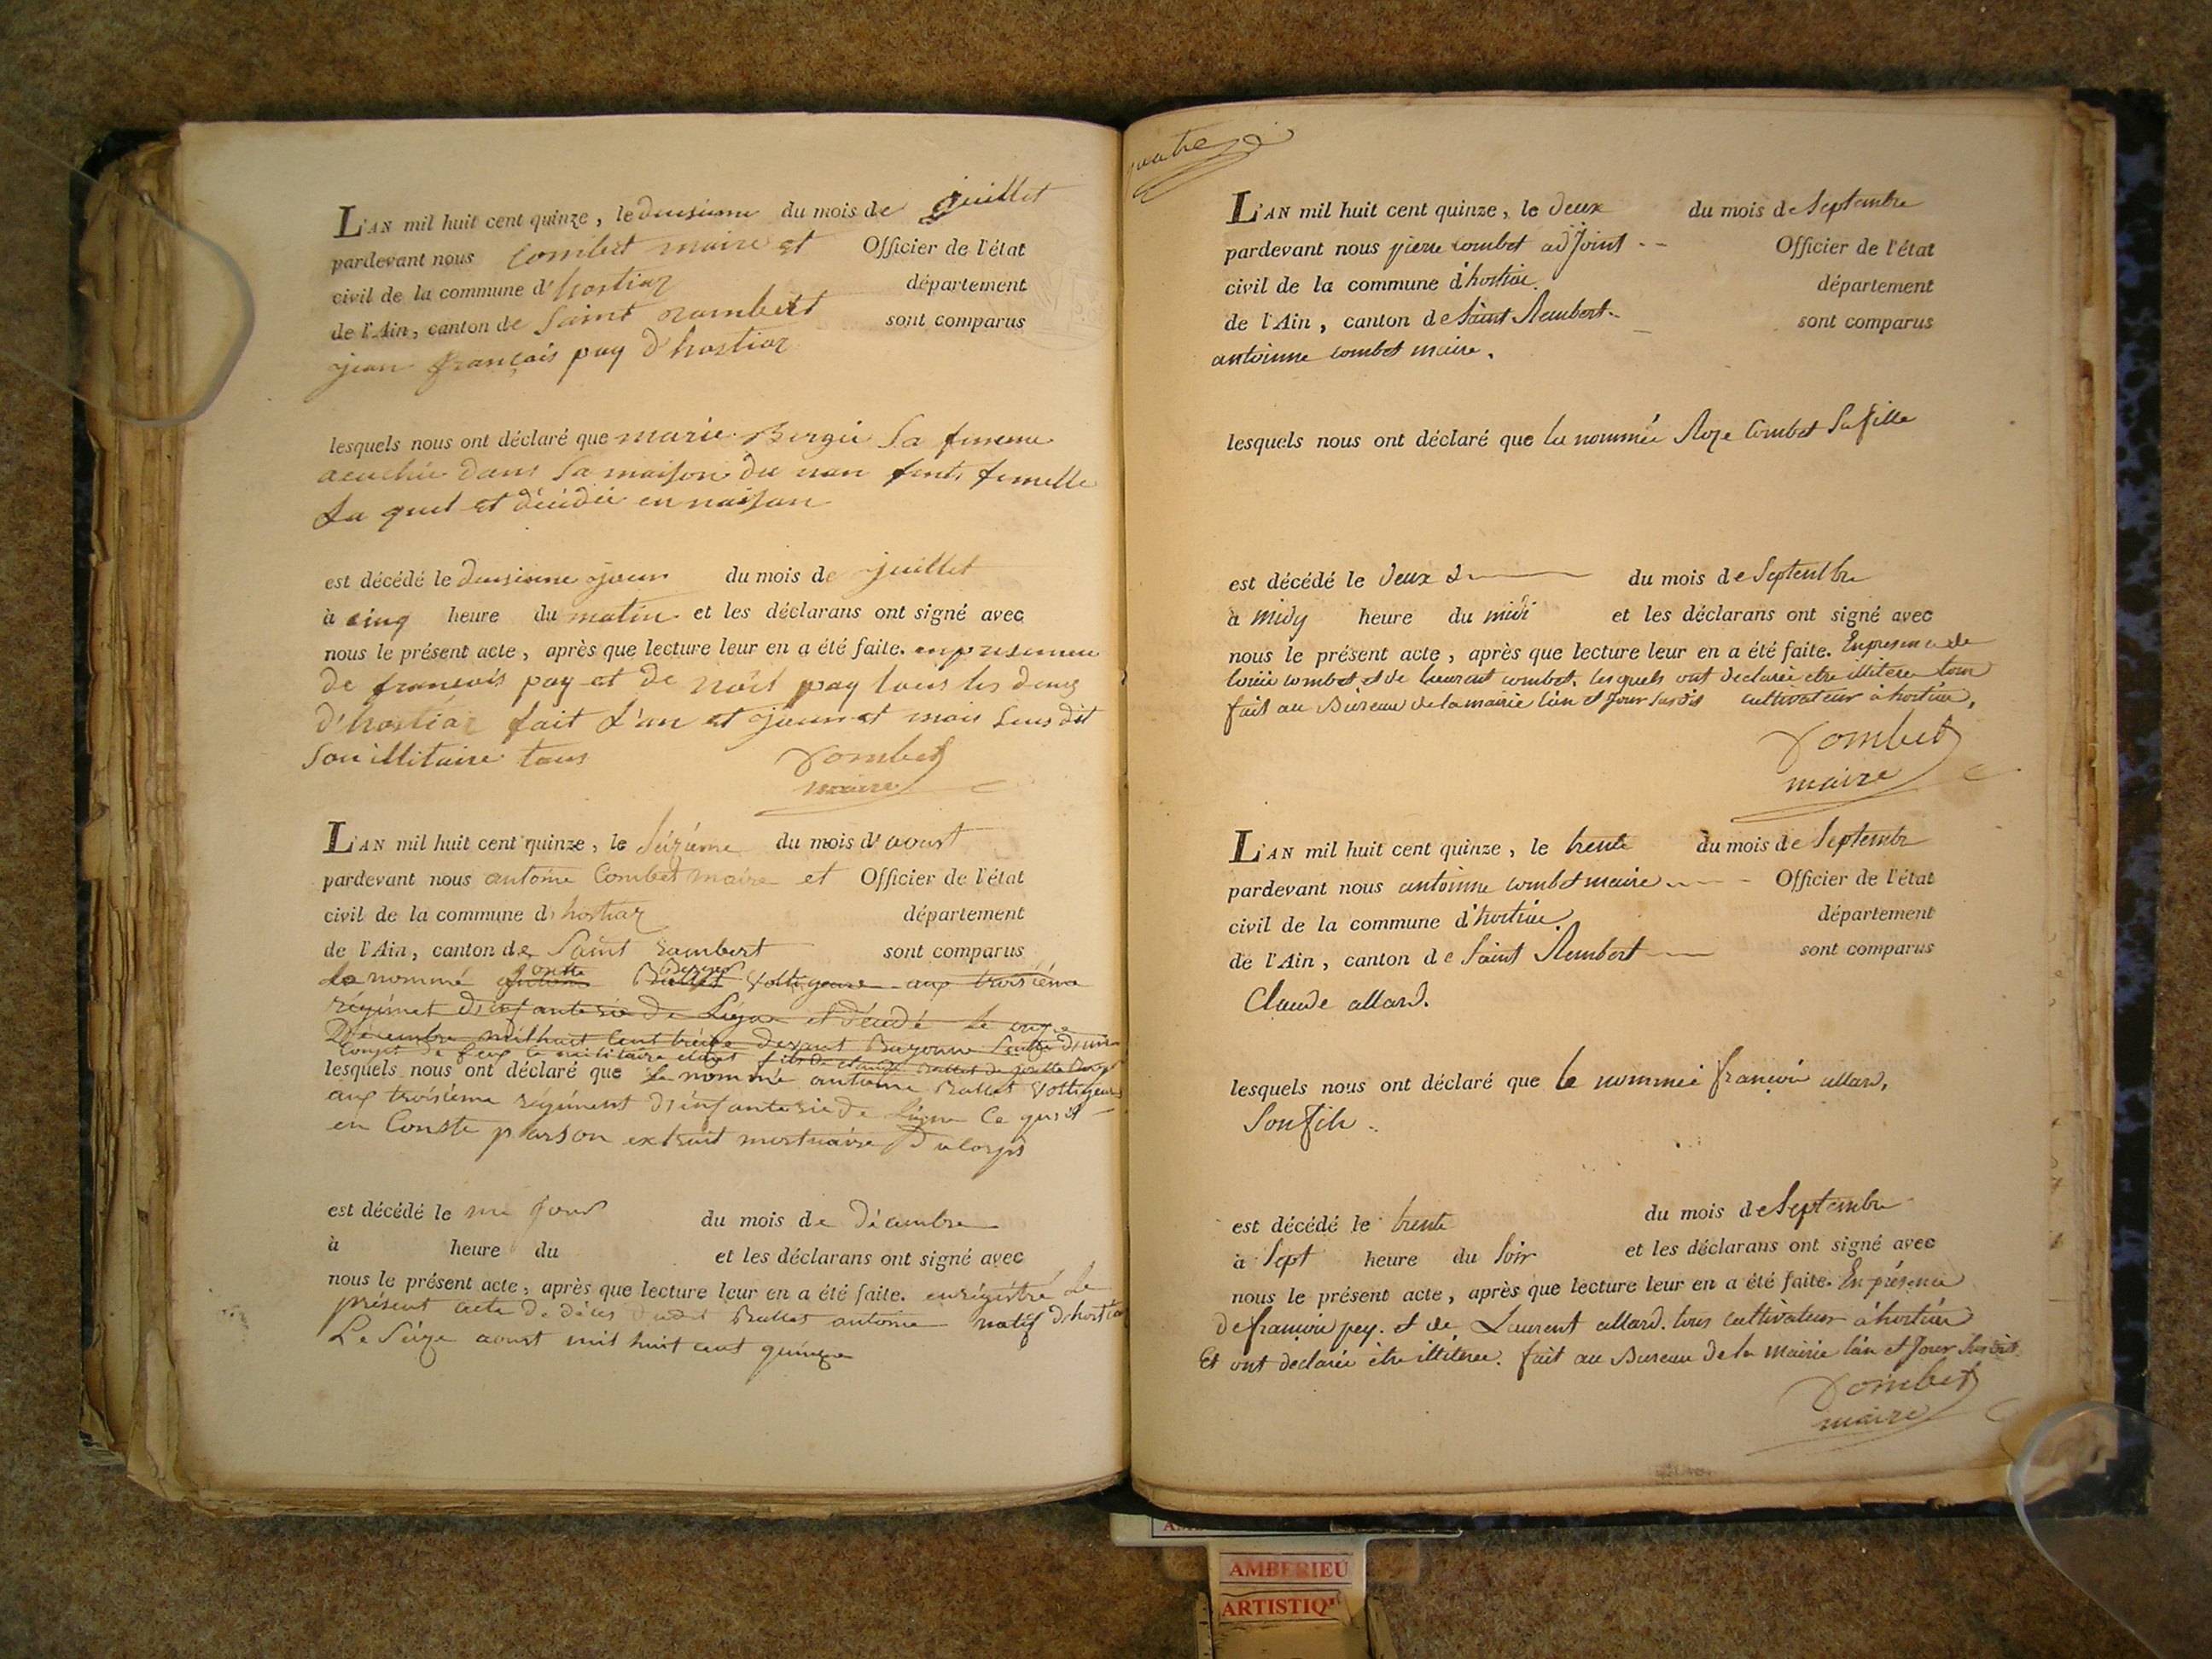 L'AN mil huit cent quinze, le deusieme du mois de juillet
pardevant nous Combet maire et Officier de l'état
civil de la commune d'hostiaz département
de l'Ain, canton de Saint rambert sont comparus
jean françois pay d'hostiaz
lesquels nous ont déclaré que marie Bergie Sa femme
acuchée dans Sa maison du nan fent femelle
La quel et décédée en naisan
est décédé le deusieme jour du mois de juillet
à cinq heure du matin et les déclarans ont signé avec
nous le présent acte, après que lecture leur en a été faite. en presence
de francois pay et de noël pay tous les deux
d'hostiaz fait L'an et jour et mois Sus dit
Son illitaire tous Combet
maire
L'AN mil huit cent quinze, le Seizieme du mois d'aoust
pardevant nous antoine Combet maire et Officier de l'état
civil de la commune d'hostiaz département
de l'Ain, canton de Saint rambert sont comparus
le nommé Ballet Voltigeure aux troisiéme
régiment d'infanterie de Ligne et décédé le onze
Décembre mil huit Cent treize devant Bayonne
Coup de feux le militaire etait fils de claude Ballet
lesquels nous ont déclaré que Le nommé antoine Ballet Voltigeur
aux troisiéme régiment d'infanterie de Ligne Ce qu'il
en Conste par son extrait mortuaire Du Corps
est décédé le jour du mois de Décembre
à heure du et les déclarans ont signé avec
nous le présent acte, après que lecture leur en a été faite. enrégistré Le
présent acte de déces dudit Ballet antoine natif d'hostiaz
Le Seize aoust mil huit cent quinze
quatre
L'AN mil huit cent quinze, le deux du mois de Septembre
pardevant nous pierre combet adjoint Officier de l'état
civil de la commune d'hostiaz département
de l'Ain, canton de Saint Rembert sont comparus
antoinne combet maire.
lesquels nous ont déclaré que la nommée Roze Combet Sa fille
est décédé le deux du mois de Septembre
à midy heure du midi et les déclarans ont signé avec
nous le présent acte, après que lecture leur en a été faite. En presence de
combet et de Laurent combet. lesquels ont declarée etre illitere tous
fait au Bureau de la mairie l'an et Jour Susdis cultivateur à hostiaz,
Combet
maire
L'AN mil huit cent quinze, le trente du mois de Septembr
pardevant nous antoinne combet maire Officier de l'état
civil de la commune d'hostiaz département
de l'Ain, canton de Saint Rembert sont comparus
Claude allard.
lesquels nous ont déclaré que le nommée françois allard,
Son fils.
est décédé le trente du mois de Septembre
à Sept heure du Soir et les déclarans ont signé avec
nous le présent acte, après que lecture leur en a été faite. En présence
de françois pey. et de Laurent allard. tous cultivateur à hostiaz
Et ont declarée être illitérée. fait au Bureau de la Mairie l'an et Jour Susdit.
Combet
maire
AMBERIEU
ARTISTIQ